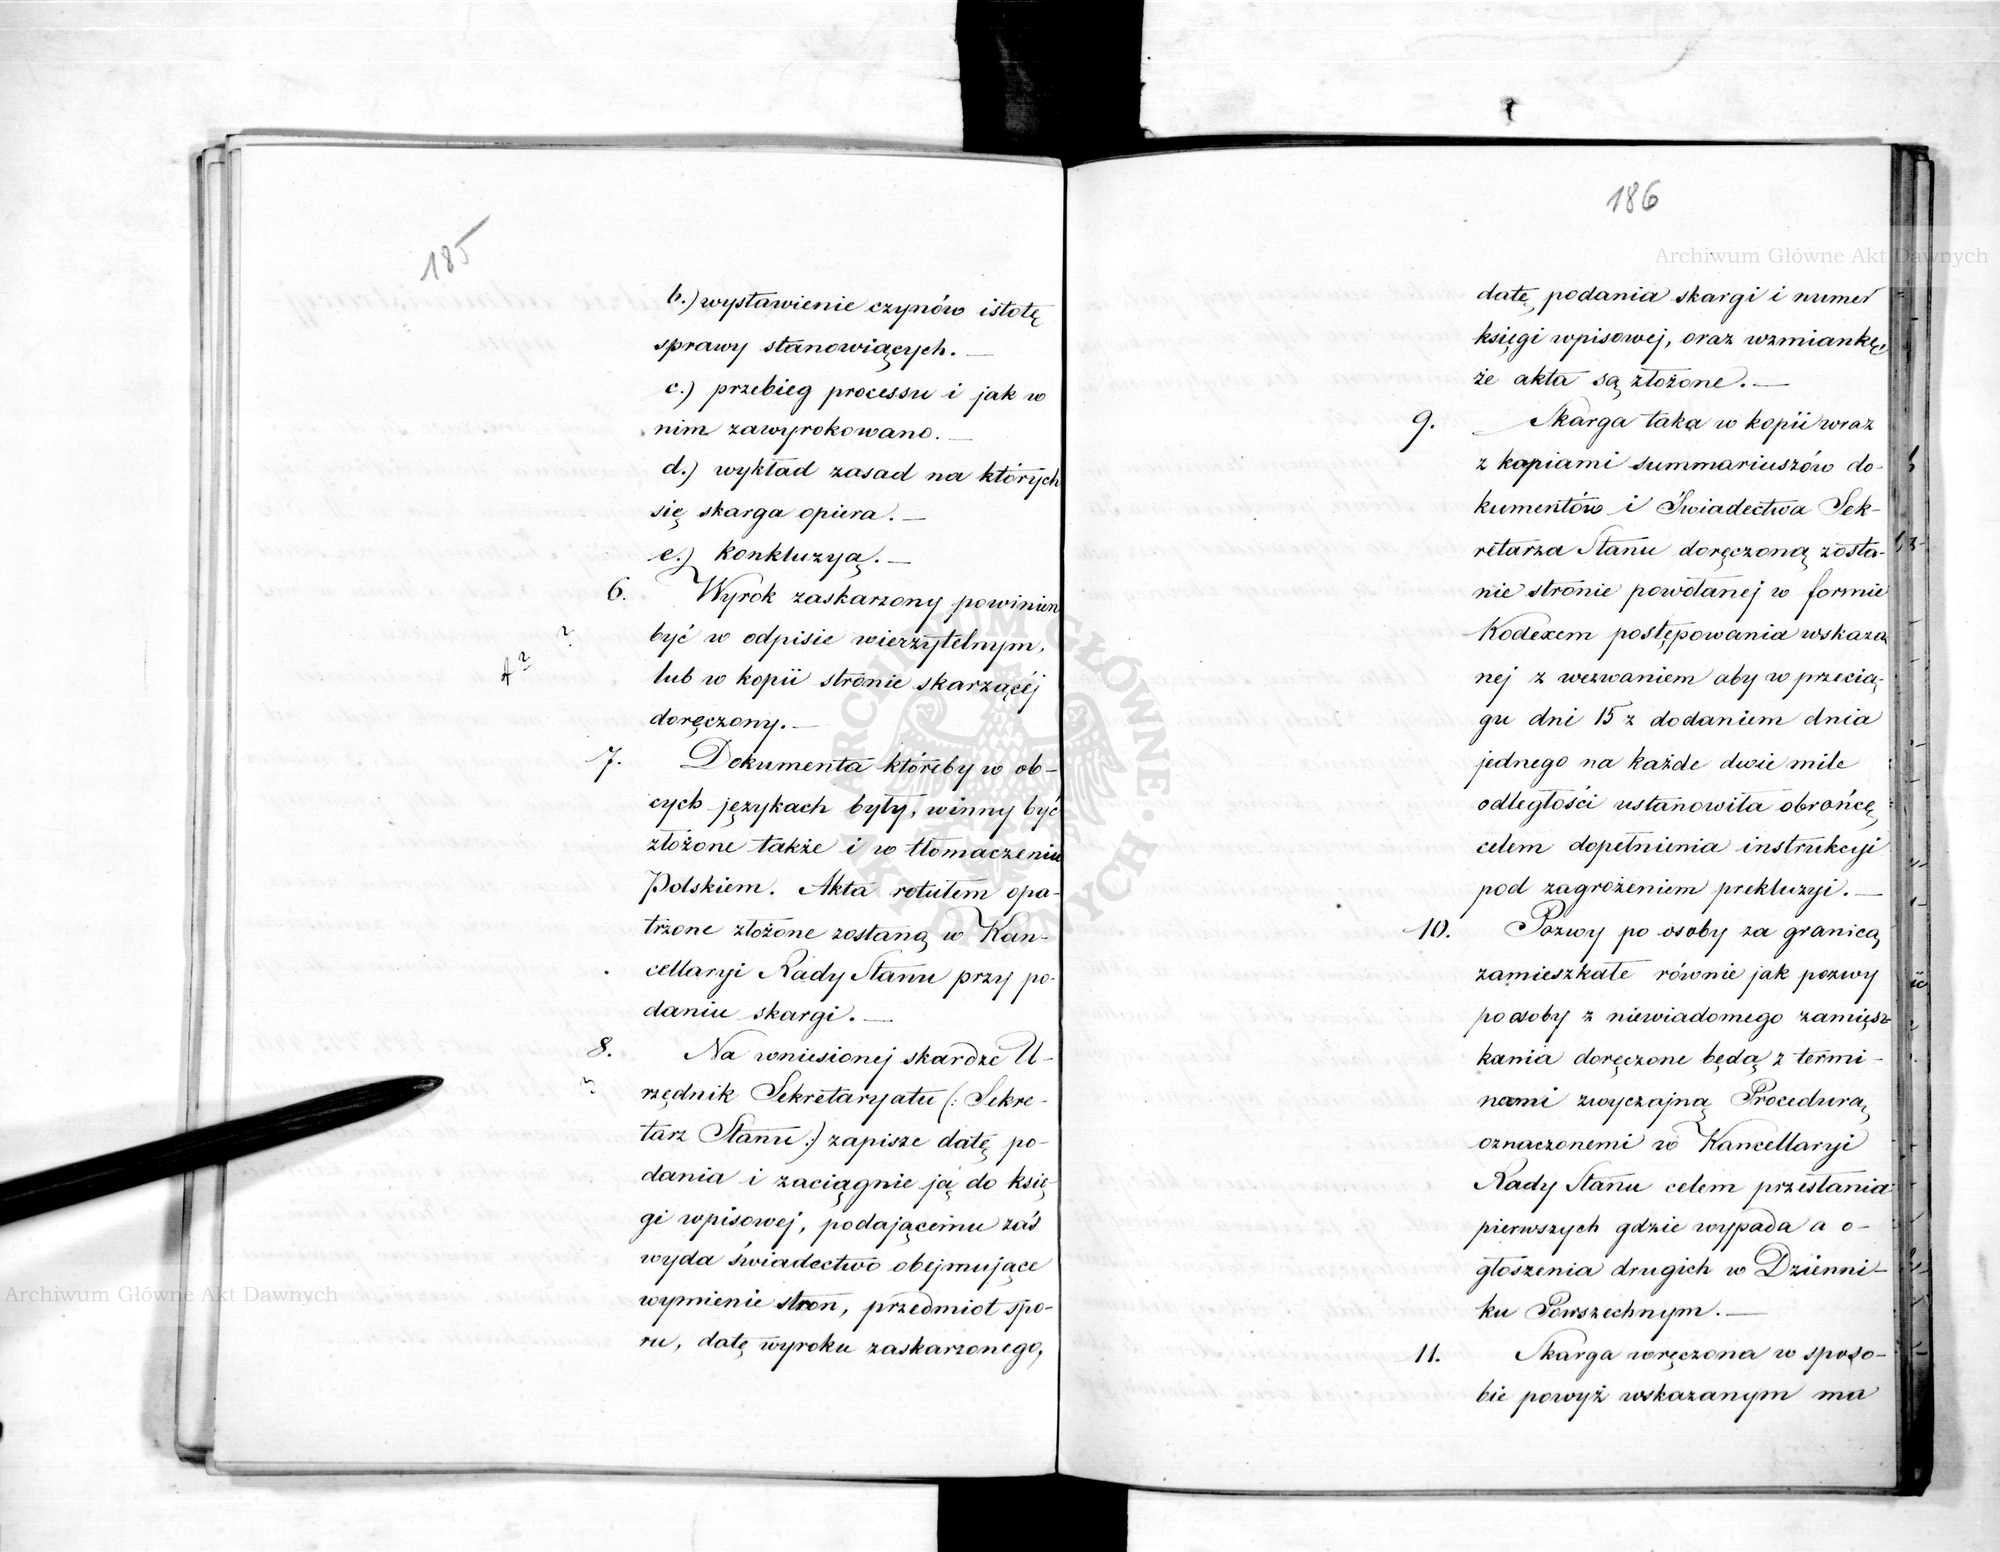 185
b.) wystawienie czynów istotę
sprawy stanowiących. —
c.) przebieg processu i jak w
nim zawyrokowano. —
d.) wykład zasad na których
się skarga opiera. —
e.) konkluzyą. —
6. Wyrok zaskarzony powinien
być w odpisie wierzytelnym,
lub w kopii stronie skarzącéj
doręczony. —
7. Dokumenta któreby w ob-
cych językach były, winny być
złożone także i w tłomaczeniu
Polskiem. Akta rotułem opa-
trzone złożone zostaną w Kan-
cellaryi Rady Stanu przy po-
daniu skargi. —
8. Na wniesionej skardze U-
rzędnik Sekretaryatu (: Sekre-
tarz Stanu :) zapisze datę po-
dania i zaciągnie ją do księ-
gi wpisowej, podającemu zaś
wyda świadectwo obejmujące
wymienie stron, przedmiot spo-
ru, datę wyroku zaskarzonego,
186
datę podania skargi i numer
księgi wpisowej, oraz wzmiankę,
że akta są złożone. —
9. Skarga taka w kopii wraz
z kopiami summariuszów do-
kumentów i Świadectwa Sek-
retarza Stanu doręczoną zosta-
nie stronie powołanej w formie
Kodexem postępowania wskaza
nej z wezwaniem aby w przecią-
gu dni 15 z dodaniem dnia
jednego na każde dwie mile
odległości ustanowiła obrońcę
celem dopełnienia instrukcyi
pod zagrożeniem prekluzyi. —
10. Pozwy po osoby za granicą
zamieszkałe równie jak pozwy
po osoby z niewiadomego zamiesz
kania doręczone będą z termi-
nami zwyczajną Procedurą
oznaczonemi w Kancellaryi
Rady Stanu celem przesłania
pierwszych gdzie wypada a o-
głoszenia drugich w Dzienni-
ku Powszechnym. —
11. Skarga wręczona w sposo-
bie powyż wskazanym ma
Archiwum Główne Akt Dawnych
Archiwum Główne Akt Dawnych
ARCHIWUM GŁÓWNE
AKT DAWNYCH